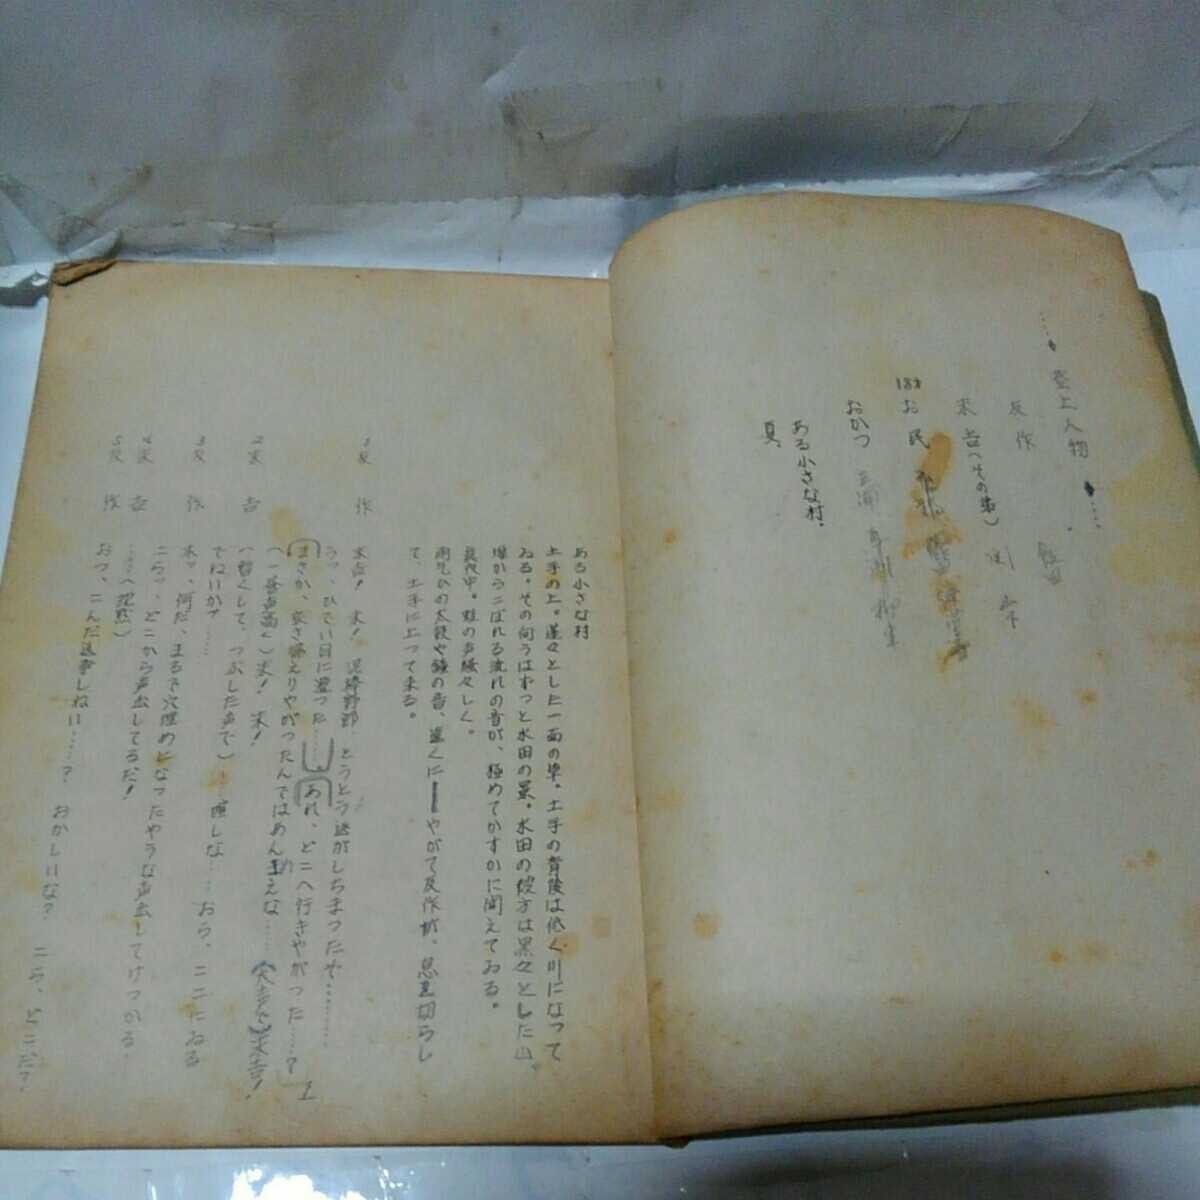 登上人物
反作
末吉(その弟) 関
18才
お民
おかつ 三浦
ある小さな村.
夏.
ある小さな村
土手の上。蓬々とした一面の草。土手の背後は低く川になって
ゐる。その向うはずっと水田の景。水田の彼方は黒々とした山。
堰からこぼれる流れの音が、極めてかすかに聞えてゐる。
真夜中。蛙の声騒々しく。
雨乞ひの太鼓や鐘の音、遠くに――やがて反作が、息せ切らし
て、土手に上って来る。
1反 作 末吉! 末! 泥棒野郎、とうとう逃がしちまつたぞ………
うゝ、ひでい目に遭つた……あれ、どこへ行きやがつた…?
まさか、家さ帰えりやがつたんではあんまえな……(大声で)末吉!
(一番声高く)末! 末!
2末 吉 (暫くして、つぶした声で)…痛しな……おら、ここにゐる
でねいか?……
3反 作 末ッ、何だ、まるで穴埋めになつたやうな声出してけつかる.
こらッ、どこから声出してるだ!
4末 吉 ……(沈黙)
5反 作 おつ、こんだ返事しねい……? おかしいな? こら、どこだ?
1